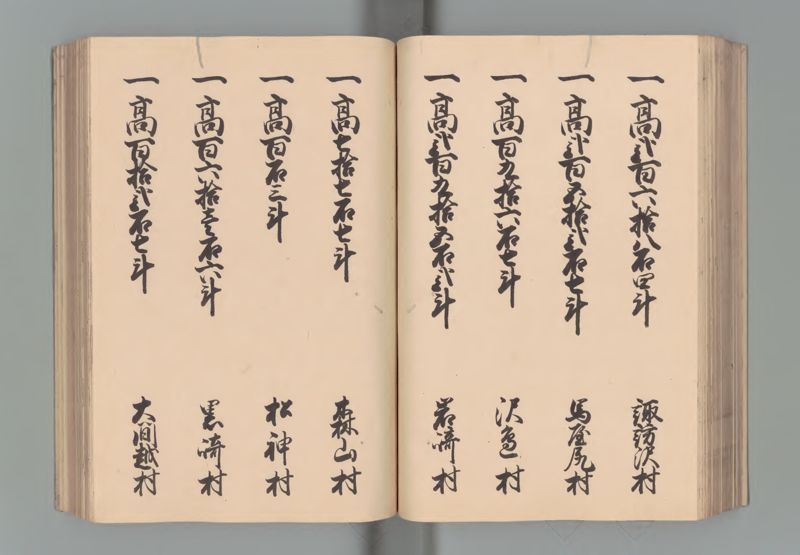 一高弐百六拾八石四斗 諏訪沢村
一高弐百五拾弐石七斗 馬屋尻村
一高百九拾六石七斗 沢辺村
一高弐百九拾五石弐斗 岩崎村
一高七拾七石七斗 森山村
一高百石三斗 松神村
一高百六拾壱石六斗 黒崎村
一高百拾弐石七斗 大間越村